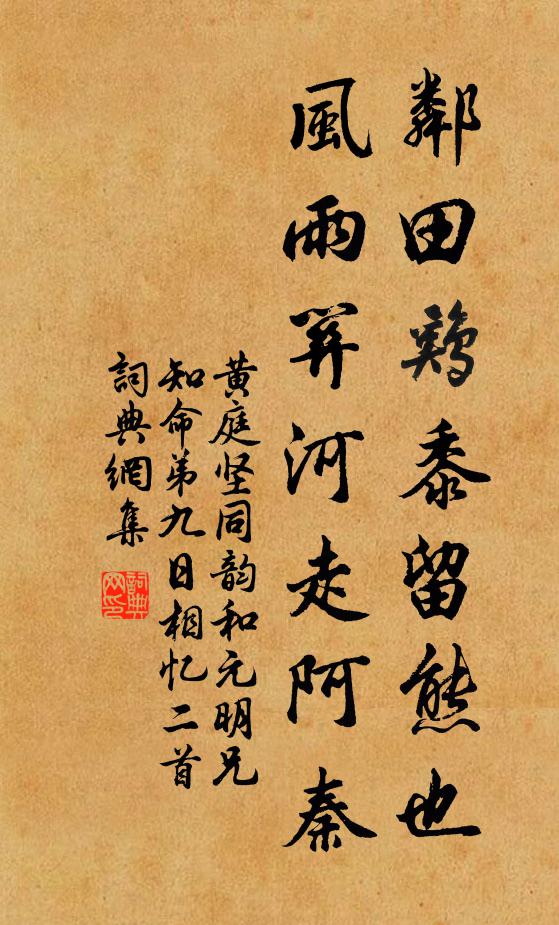 鄰田鷄黍留熊也
風雨關河走阿秦
黄庭坚同韵和元明兄
知命弟九日相忆二首
詞典網集
詞典网印